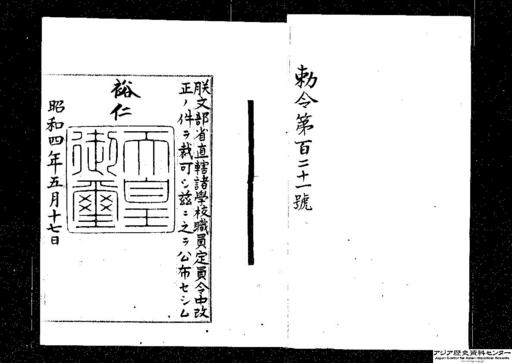 勅令第百二十一號
朕文部省直轄諸學校職員定員令中改
正ノ件ヲ裁可シ茲ニ之ヲ公布セシム
裕仁
天皇
御璽
昭和四年五月十七日
アジア歴史資料センター
Japan Center for Asian Historical Records